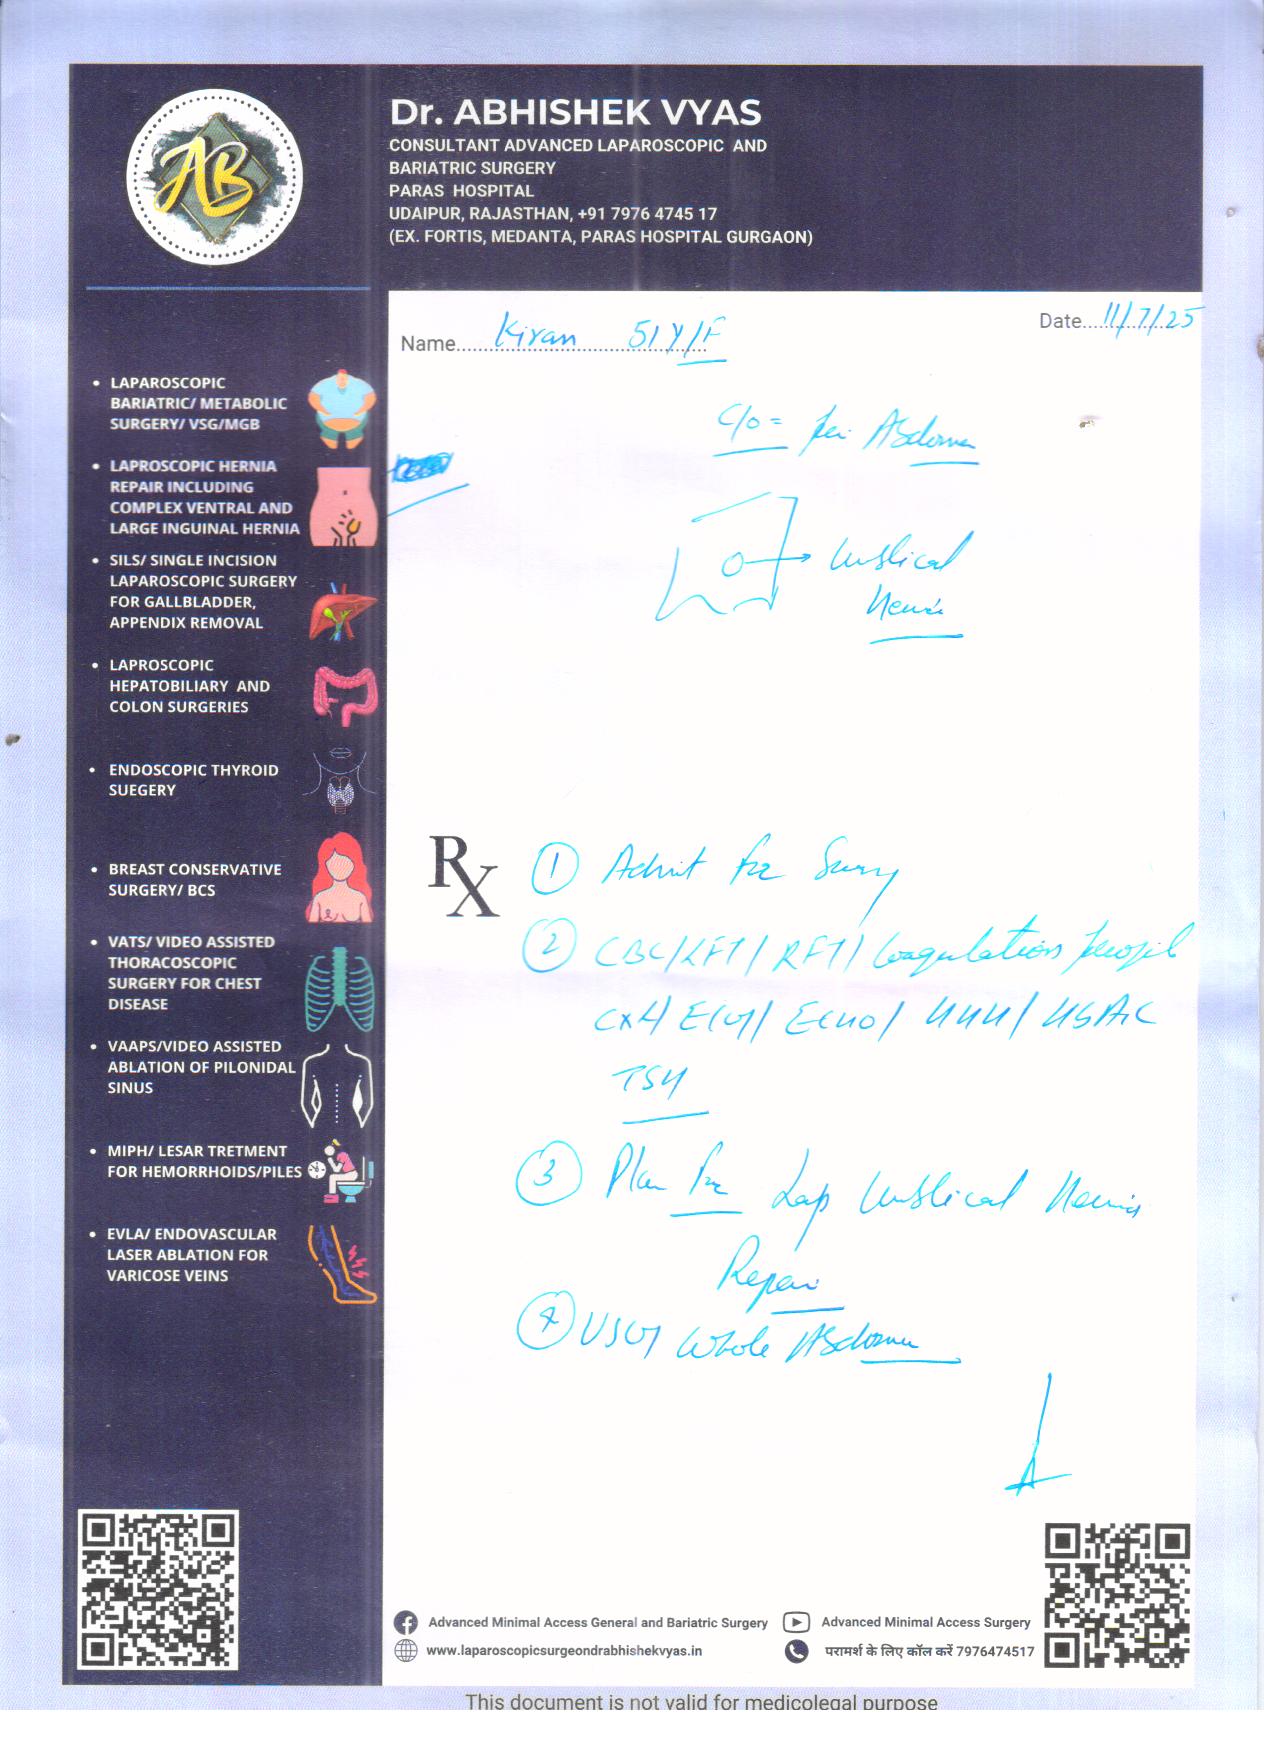 AB
Dr. ABHISHEK VYAS
CONSULTANT ADVANCED LAPAROSCOPIC AND
BARIATRIC SURGERY
PARAS HOSPITAL
UDAIPUR, RAJASTHAN, +91 7976 4745 17
(EX. FORTIS, MEDANTA, PARAS HOSPITAL GURGAON)
Date 11/7/25
Name Kiran 51 Y/F
• LAPAROSCOPIC
BARIATRIC/ METABOLIC
SURGERY/ VSG/MGB
• LAPROSCOPIC HERNIA
REPAIR INCLUDING
COMPLEX VENTRAL AND
LARGE INGUINAL HERNIA
• SILS/ SINGLE INCISION
LAPAROSCOPIC SURGERY
FOR GALLBLADDER,
APPENDIX REMOVAL
• LAPROSCOPIC
HEPATOBILIARY AND
COLON SURGERIES
• ENDOSCOPIC THYROID
SUEGERY
• BREAST CONSERVATIVE
SURGERY/ BCS
• VATS/ VIDEO ASSISTED
THORACOSCOPIC
SURGERY FOR CHEST
DISEASE
• VAAPS/VIDEO ASSISTED
ABLATION OF PILONIDAL
SINUS
• MIPH/ LESAR TRETMENT
FOR HEMORRHOIDS/PILES
• EVLA/ ENDOVASCULAR
LASER ABLATION FOR
VARICOSE VEINS
C/o = Abdomen
Umbilical
Hernia
Rx
① Admit for Surgery
② CBC/LFT/RFT/Coagulation
CXR/ECG/ECHO/ /HbA1C
TSH
③ Plan for Lap Umbilical Hernia
Repair
④ USG Whole Abdomen
Advanced Minimal Access General and Bariatric Surgery
Advanced Minimal Access Surgery
www.laparoscopicsurgeondrabhishekvyas.in
परामर्श के लिए कॉल करें 7976474517
This document is not valid for medicolegal purpose